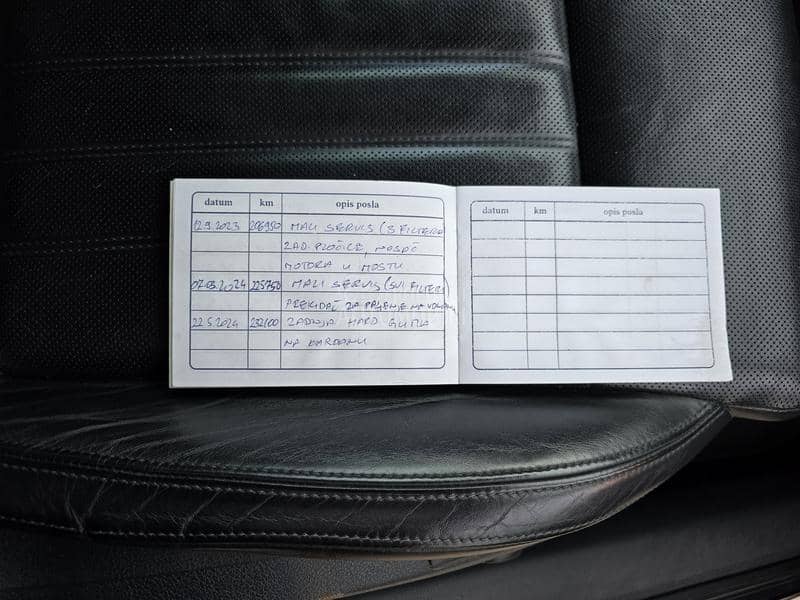 datum km opis posla
12.9.2023 206950 MALI SERVIS (3 FILTERA
ZAD. PLOČICE, NOSAČ
MOTORA U MOSTU
07.03.2024 225750 MALI SERVIS (SVI FILTERI)
PREKIDAČ ZA PALJENJE NA
22.5.2024 232100 ZADNJA HARD GUMA
NA KARDANU
datum km opis posla